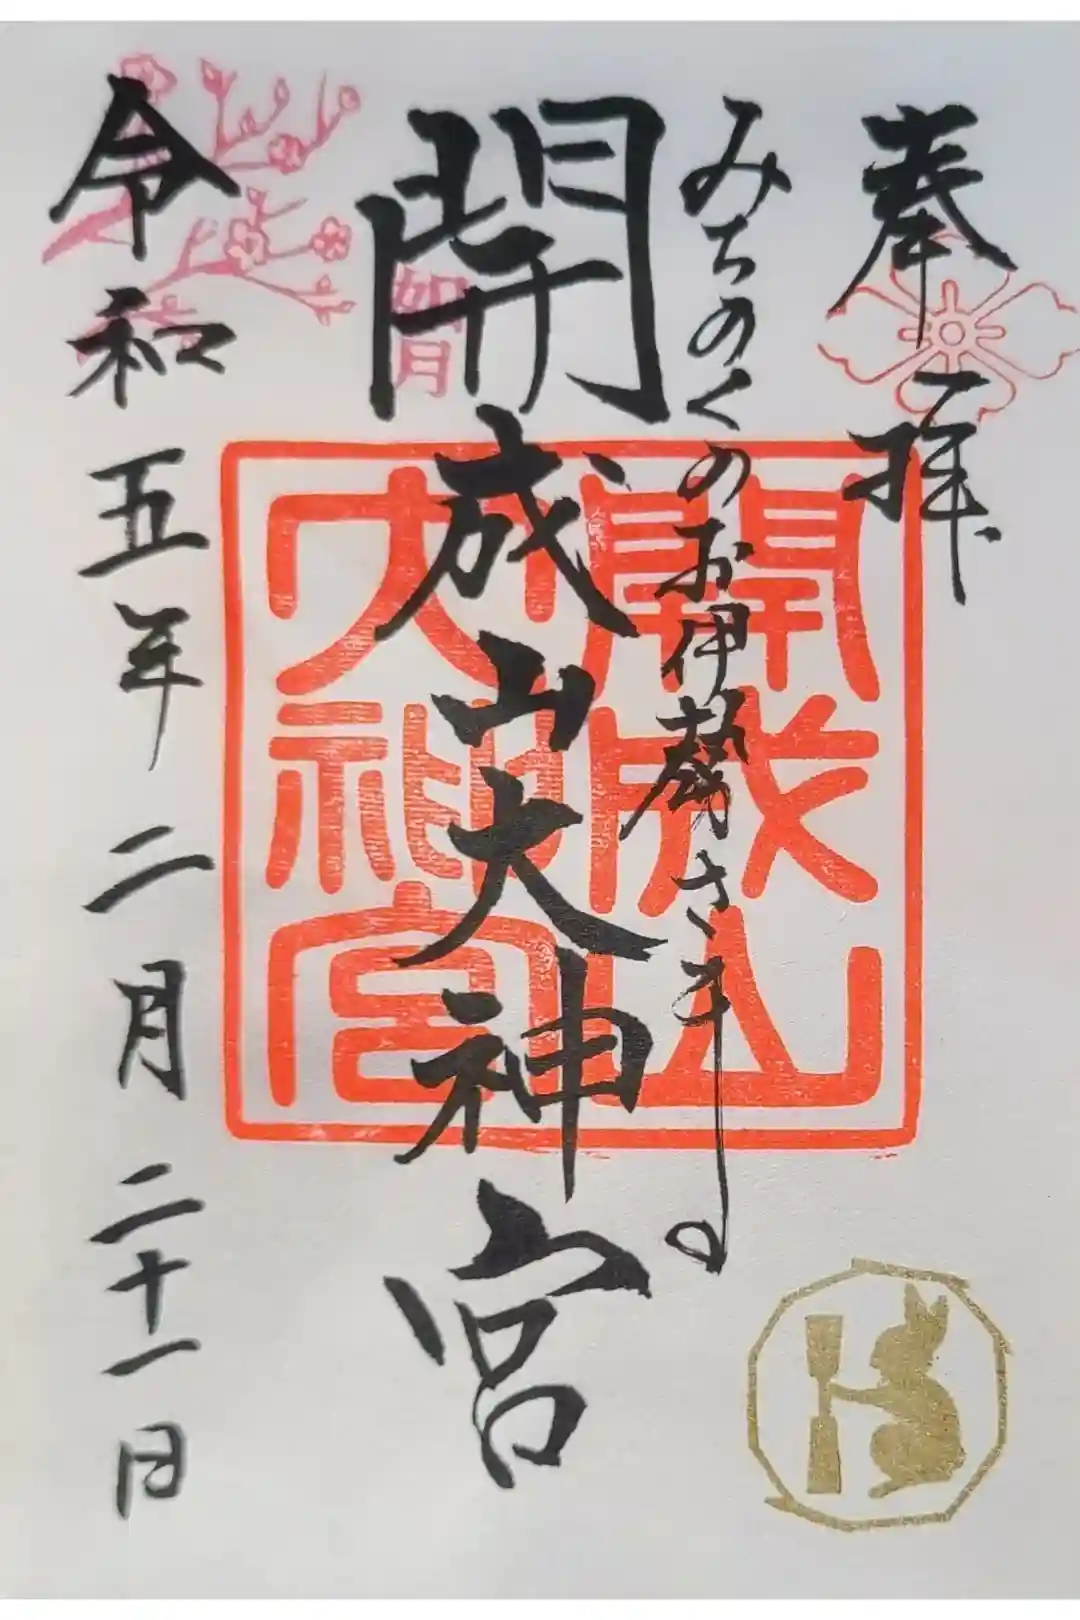 奉拝
みちのくのお伊勢さま
開成山大神宮
令和五年二月二十一日
開成山
大神宮
如月